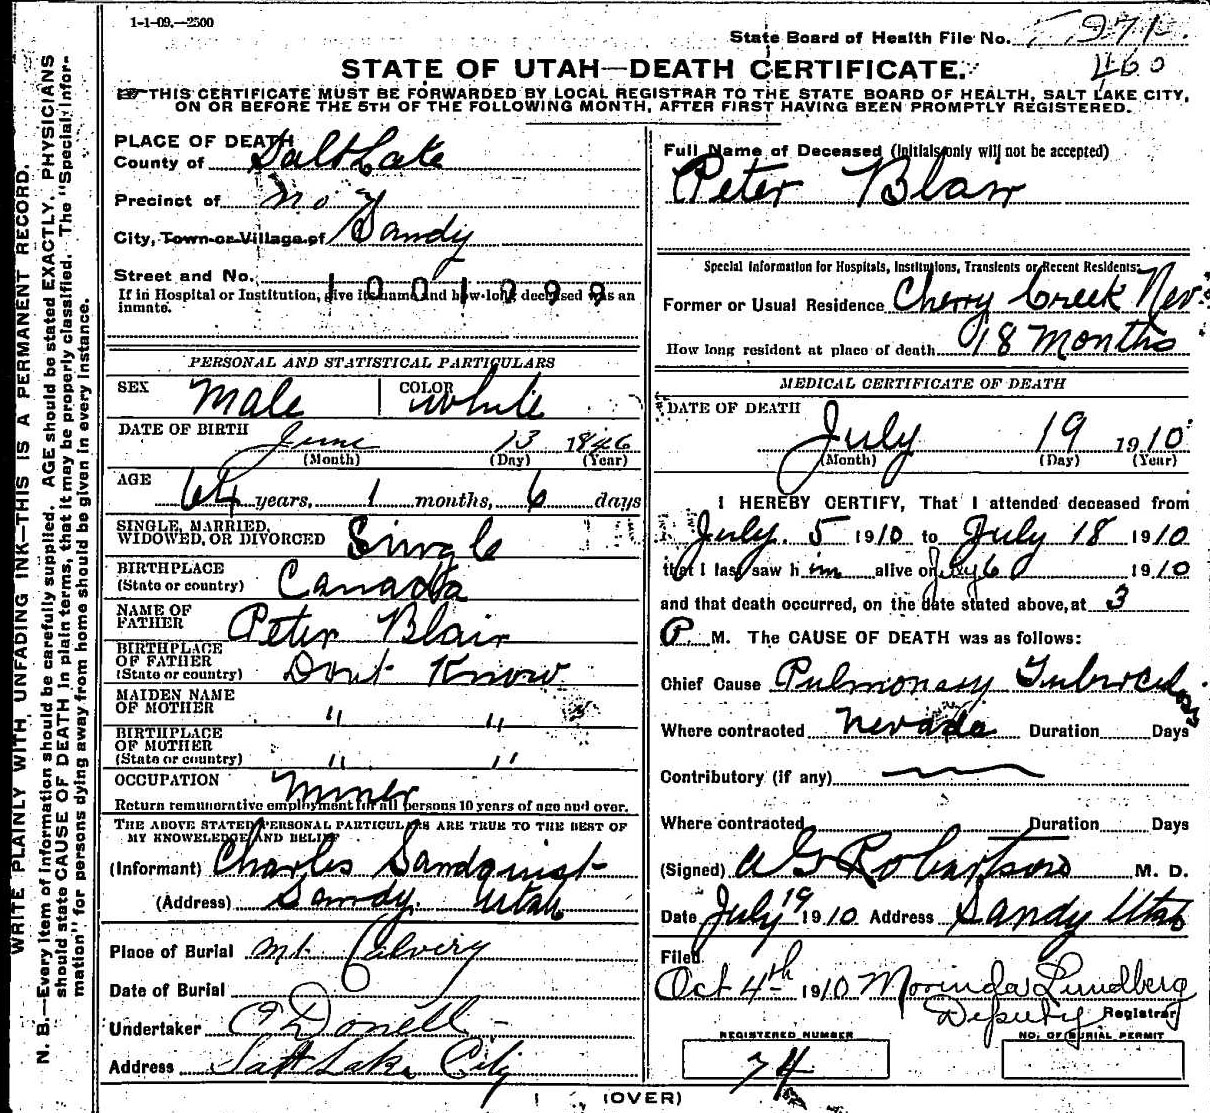 1-1-09.—2500
State Board of Health File No. 971
460
STATE OF UTAH—DEATH CERTIFICATE.
THIS CERTIFICATE MUST BE FORWARDED BY LOCAL REGISTRAR TO THE STATE BOARD OF HEALTH, SALT LAKE CITY,
ON OR BEFORE THE 5TH OF THE FOLLOWING MONTH, AFTER FIRST HAVING BEEN PROMPTLY REGISTERED.
WRITE PLAINLY WITH UNFADING INK—THIS IS A PERMANENT RECORD.
N. B.—Every item of information should be carefully supplied. AGE should be stated EXACTLY. PHYSICIANS
should state CAUSE OF DEATH in plain terms, that it may be properly classified. The "Special Infor-
mation" for persons dying away from home should be given in every instance.
PLACE OF DEATH
County of Salt Lake
Precinct of
City, Town or Village of Sandy
Street and No.
1001099
If in Hospital or Institution, give its name and how long deceased was an
inmate.
PERSONAL AND STATISTICAL PARTICULARS
SEX Male COLOR White
DATE OF BIRTH June 13 1846
(Month) (Day) (Year)
AGE 64 years, 1 months, 6 days
SINGLE, MARRIED,
WIDOWED, OR DIVORCED Single
BIRTHPLACE
(State or country) Canada
NAME OF
FATHER Peter Blair
BIRTHPLACE
OF FATHER
(State or country) Dont Know
MAIDEN NAME
OF MOTHER " "
BIRTHPLACE
OF MOTHER
(State or country) " "
OCCUPATION Miner
Return remunerative employment for all persons 10 years of age and over.
THE ABOVE STATED PERSONAL PARTICULARS ARE TRUE TO THE BEST OF
MY KNOWLEDGE AND BELIEF
(Informant) Charles Sandquist
(Address) Sandy Utah
Place of Burial Mt Calvery
Date of Burial
Undertaker O Donell
Address Salt Lake City
Full Name of Deceased (Initials only will not be accepted)
Peter Blair
Special Information for Hospitals, Institutions, Transients or Recent Residents:
Former or Usual Residence Cherry Creek Nev
How long resident at place of death 18 Months
MEDICAL CERTIFICATE OF DEATH
DATE OF DEATH
July 19 1910
(Month) (Day) (Year)
I HEREBY CERTIFY, That I attended deceased from
July 5 1910 to July 18 1910
that I last saw him alive on July 6 1910
and that death occurred, on the date stated above, at 3
P. M. The CAUSE OF DEATH was as follows:
Chief Cause Pulmonary Tuberculosis
Where contracted Nevada Duration Days
Contributory (if any)
Where contracted Duration Days
(Signed) A G Robertson M. D.
Date July 19 1910 Address Sandy Utah
Filed
Oct 4th 1910 Morinda Lundberg
Deputy Registrar
REGISTERED NUMBER
74
NO. OF BURIAL PERMIT
(OVER)